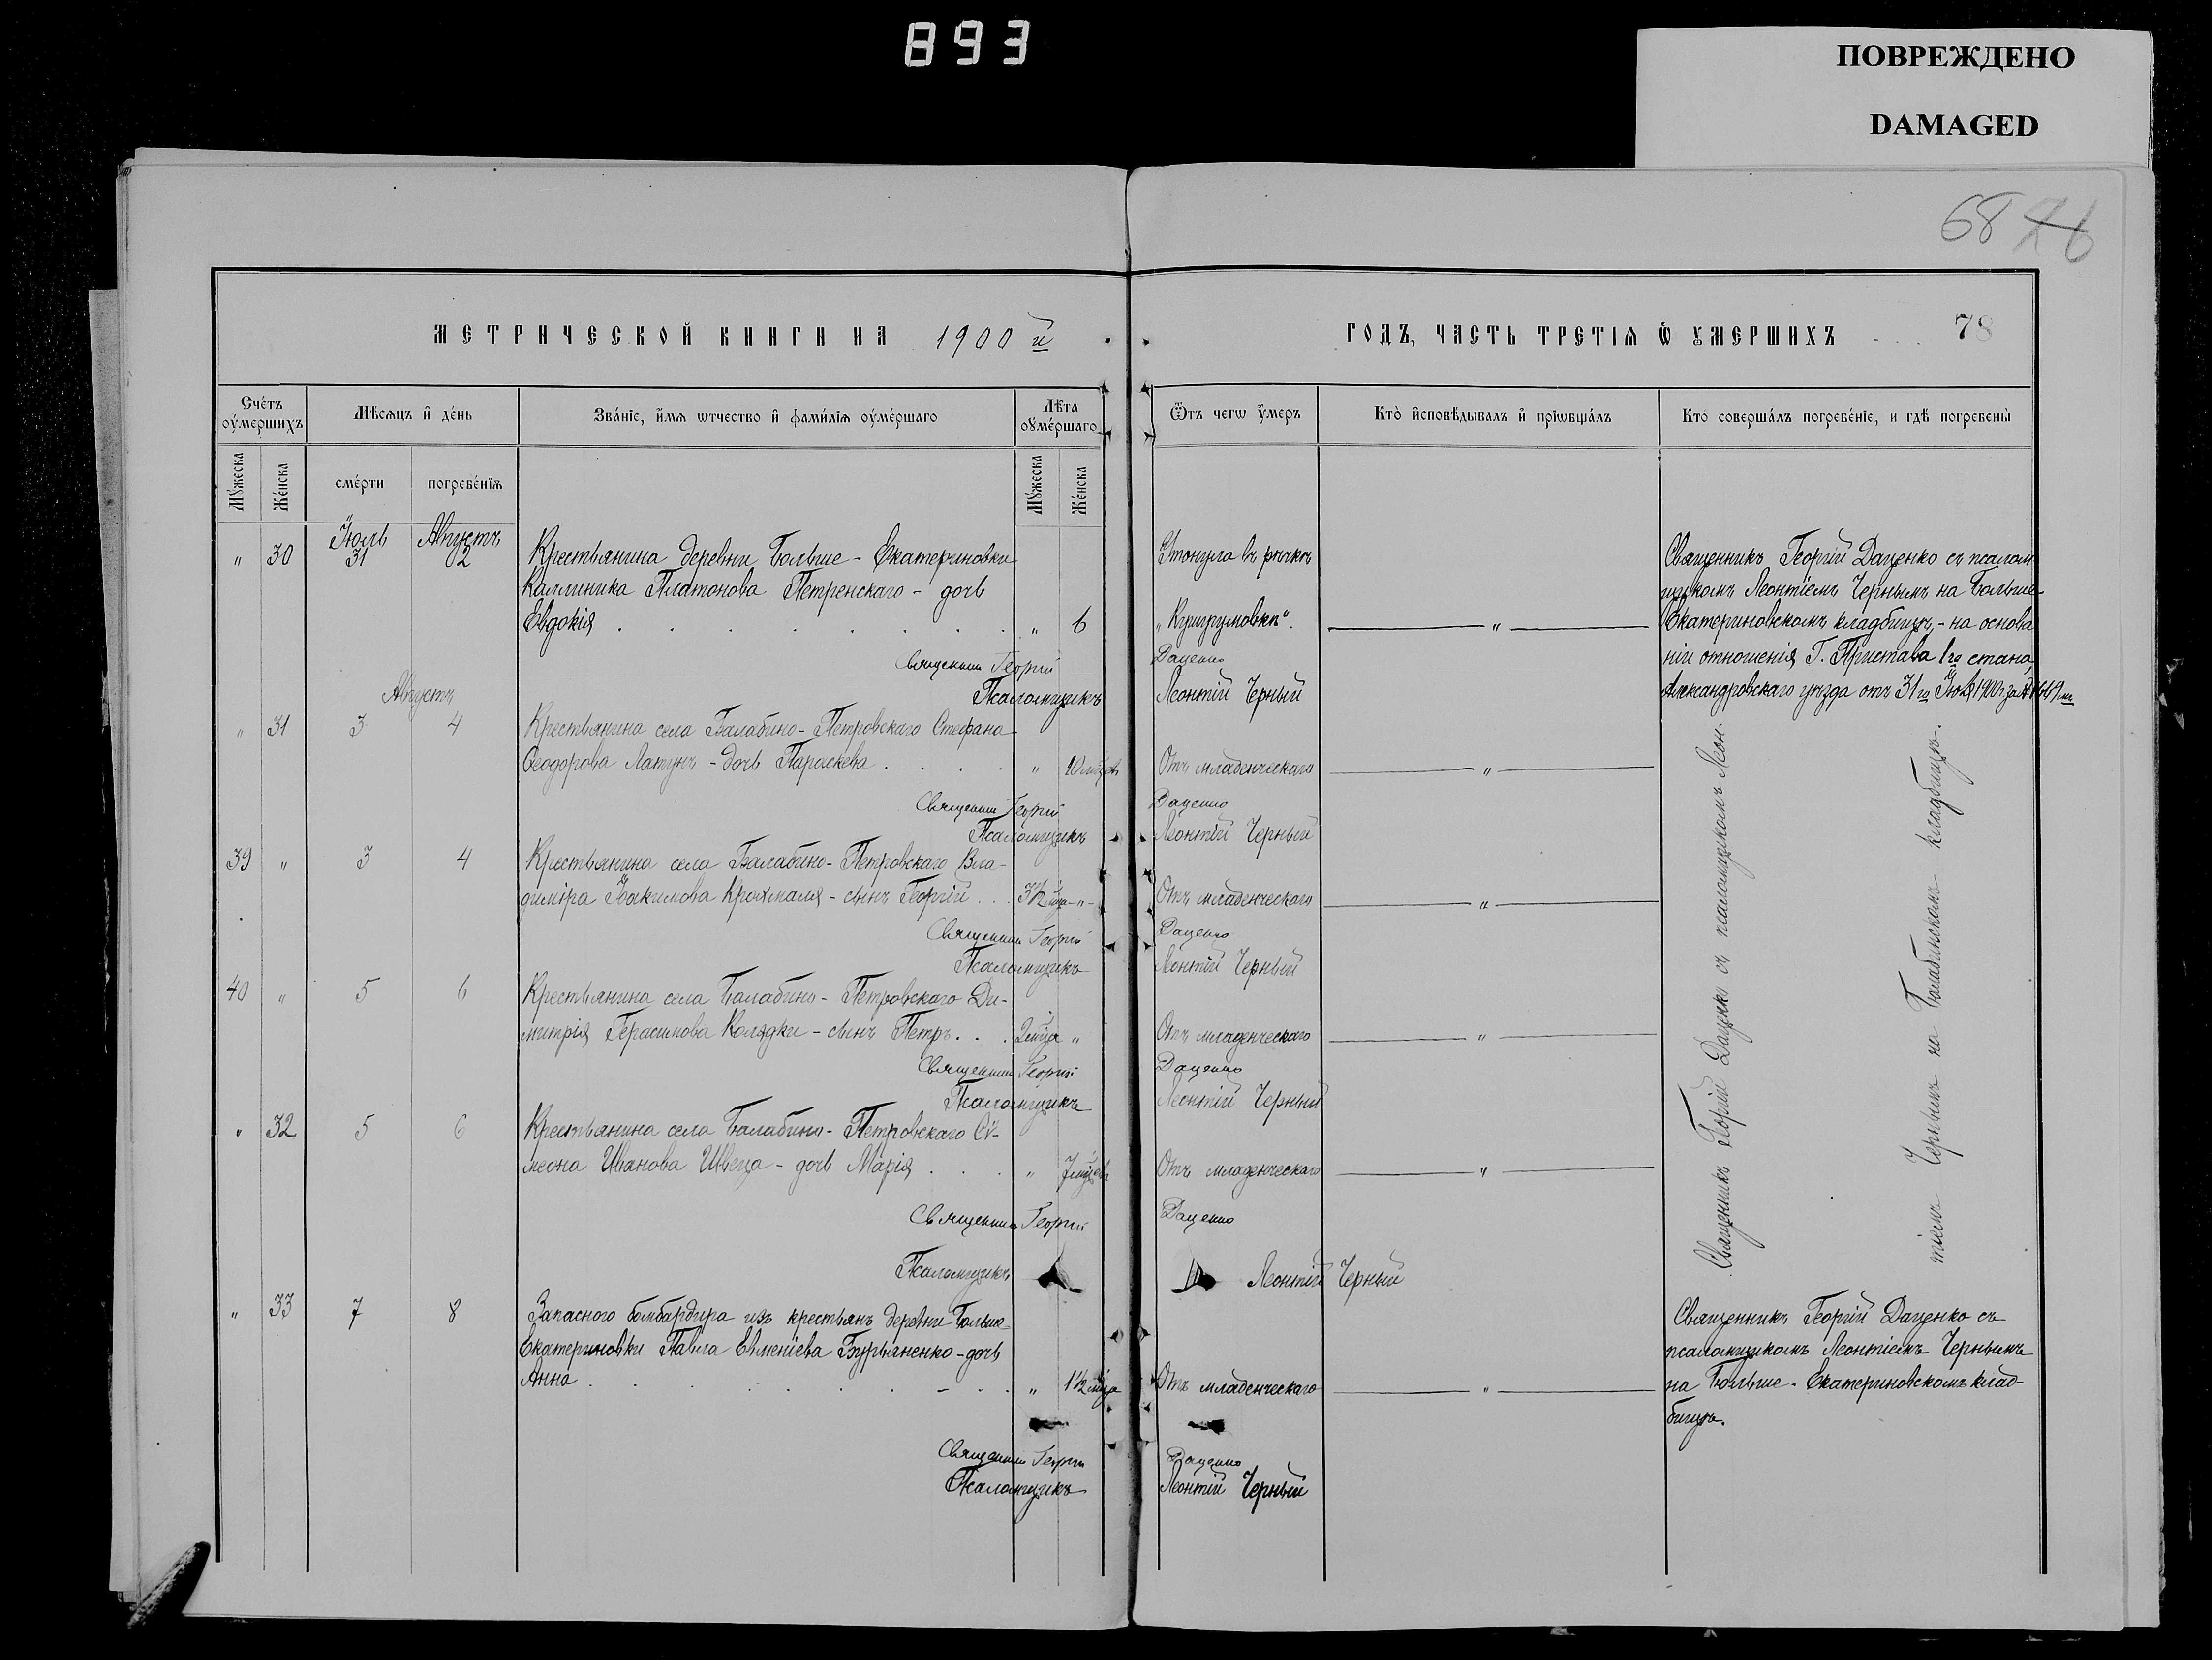 893
ПОВРЕЖДЕНО
DAMAGED
68 26
МЕТРИЧЕСКОЙ КНИГИ НА 1900й
ГОДЪ, ЧАСТЬ ТРЕТІѦ Ѡ УМЕРШИХЪ 78
Счетъ оумершихъ
Мѣсяцъ и день
Званіе, имя ѡтчество и фамилія оумершаго
Лѣта оумершаго
Ѿтъ чегѡ умеръ
Кто исповѣдывалъ и пріѡбщалъ
Кто совершалъ погребеніе, и гдѣ погребены
Мужеска
Женска
смерти
погребенія
Мужеска
Женска
Іюль Августъ
" 30 31 2 Крестьянина деревни Больше-Екатериновки
Каллиника Платонова Петренскаго - дочь
Евдокія " 6
Утонула въ рѣчкѣ
"Кушугумовкѣ". "
Священникъ Георгій Даценко съ псалом
щикомъ Леонтіемъ Чернымъ на Больше-
Екатериновскомъ кладбищѣ, - на основа
ніи отношенія Г. Пристава 1го стана,
Александровскаго уѣзда отъ 31го Іюля 1900 г. за №
Священникъ Георгій Даценко
Псаломщикъ Леонтій Черный
Августъ
" 31 3 4 Крестьянина села Балабино-Петровскаго Стефана
Ѳеодорова Латунъ - дочь Параскева " 10 мѣсяц. Отъ младенческаго "
Священникъ Георгій Даценко
Псаломщикъ Леонтій Черный
39 " 3 4 Крестьянина села Балабино-Петровскаго Вла-
диміра Іоакимова Крохмаля - сынъ Георгій 3½ мѣсяца " Отъ младенческаго "
Священникъ Георгій Даценко
Псаломщикъ Леонтій Черный
40 " 5 6 Крестьянина села Балабино-Петровскаго Ди-
митрія Герасимова Колядки - сынъ Петръ 2 мѣсца " Отъ младенческаго "
Священникъ Георгій Даценко
Псаломщикъ Леонтій Черный
" 32 5 6 Крестьянина села Балабино-Петровскаго Сѵ-
меона Иванова Швеца - дочь Марія " 7 мѣсцевъ Отъ младенческаго "
Священникъ Георгій Даценко
Псаломщикъ Леонтій Черный
Священникъ Георгій Даценко съ псаломщикомъ Леон-
тіемъ Чернымъ на Балабинскомъ кладбищѣ.
" 33 7 8 Запаснаго бомбардира изъ крестьянъ деревни Больше-
Екатериновки Павла Евменіева Бурьяненко - дочь
Анна " 1½ мѣсца Отъ младенческаго "
Священникъ Георгій Даценко съ
псаломщикомъ Леонтіемъ Чернымъ
на Больше-Екатериновскомъ клад-
бищѣ.
Священникъ Георгій Даценко
Псаломщикъ Леонтій Черный